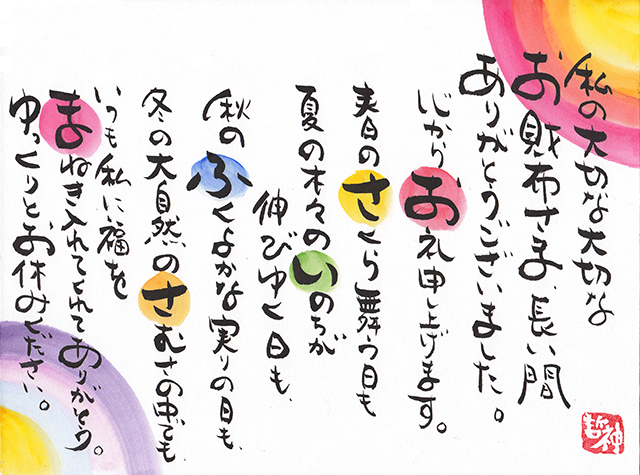 私の大切な大切な
お財布さま、長い間
ありがとうございました。
心からお礼申し上げます。
春日のさくら舞う日も
夏の木々のいのちが
伸びゆく日も、
秋のふくよかな実りの日も、
冬の大自然のさむさの中でも
いつも私に福を
まねき入れてくれてありがとう。
ゆっくりとお休みください。